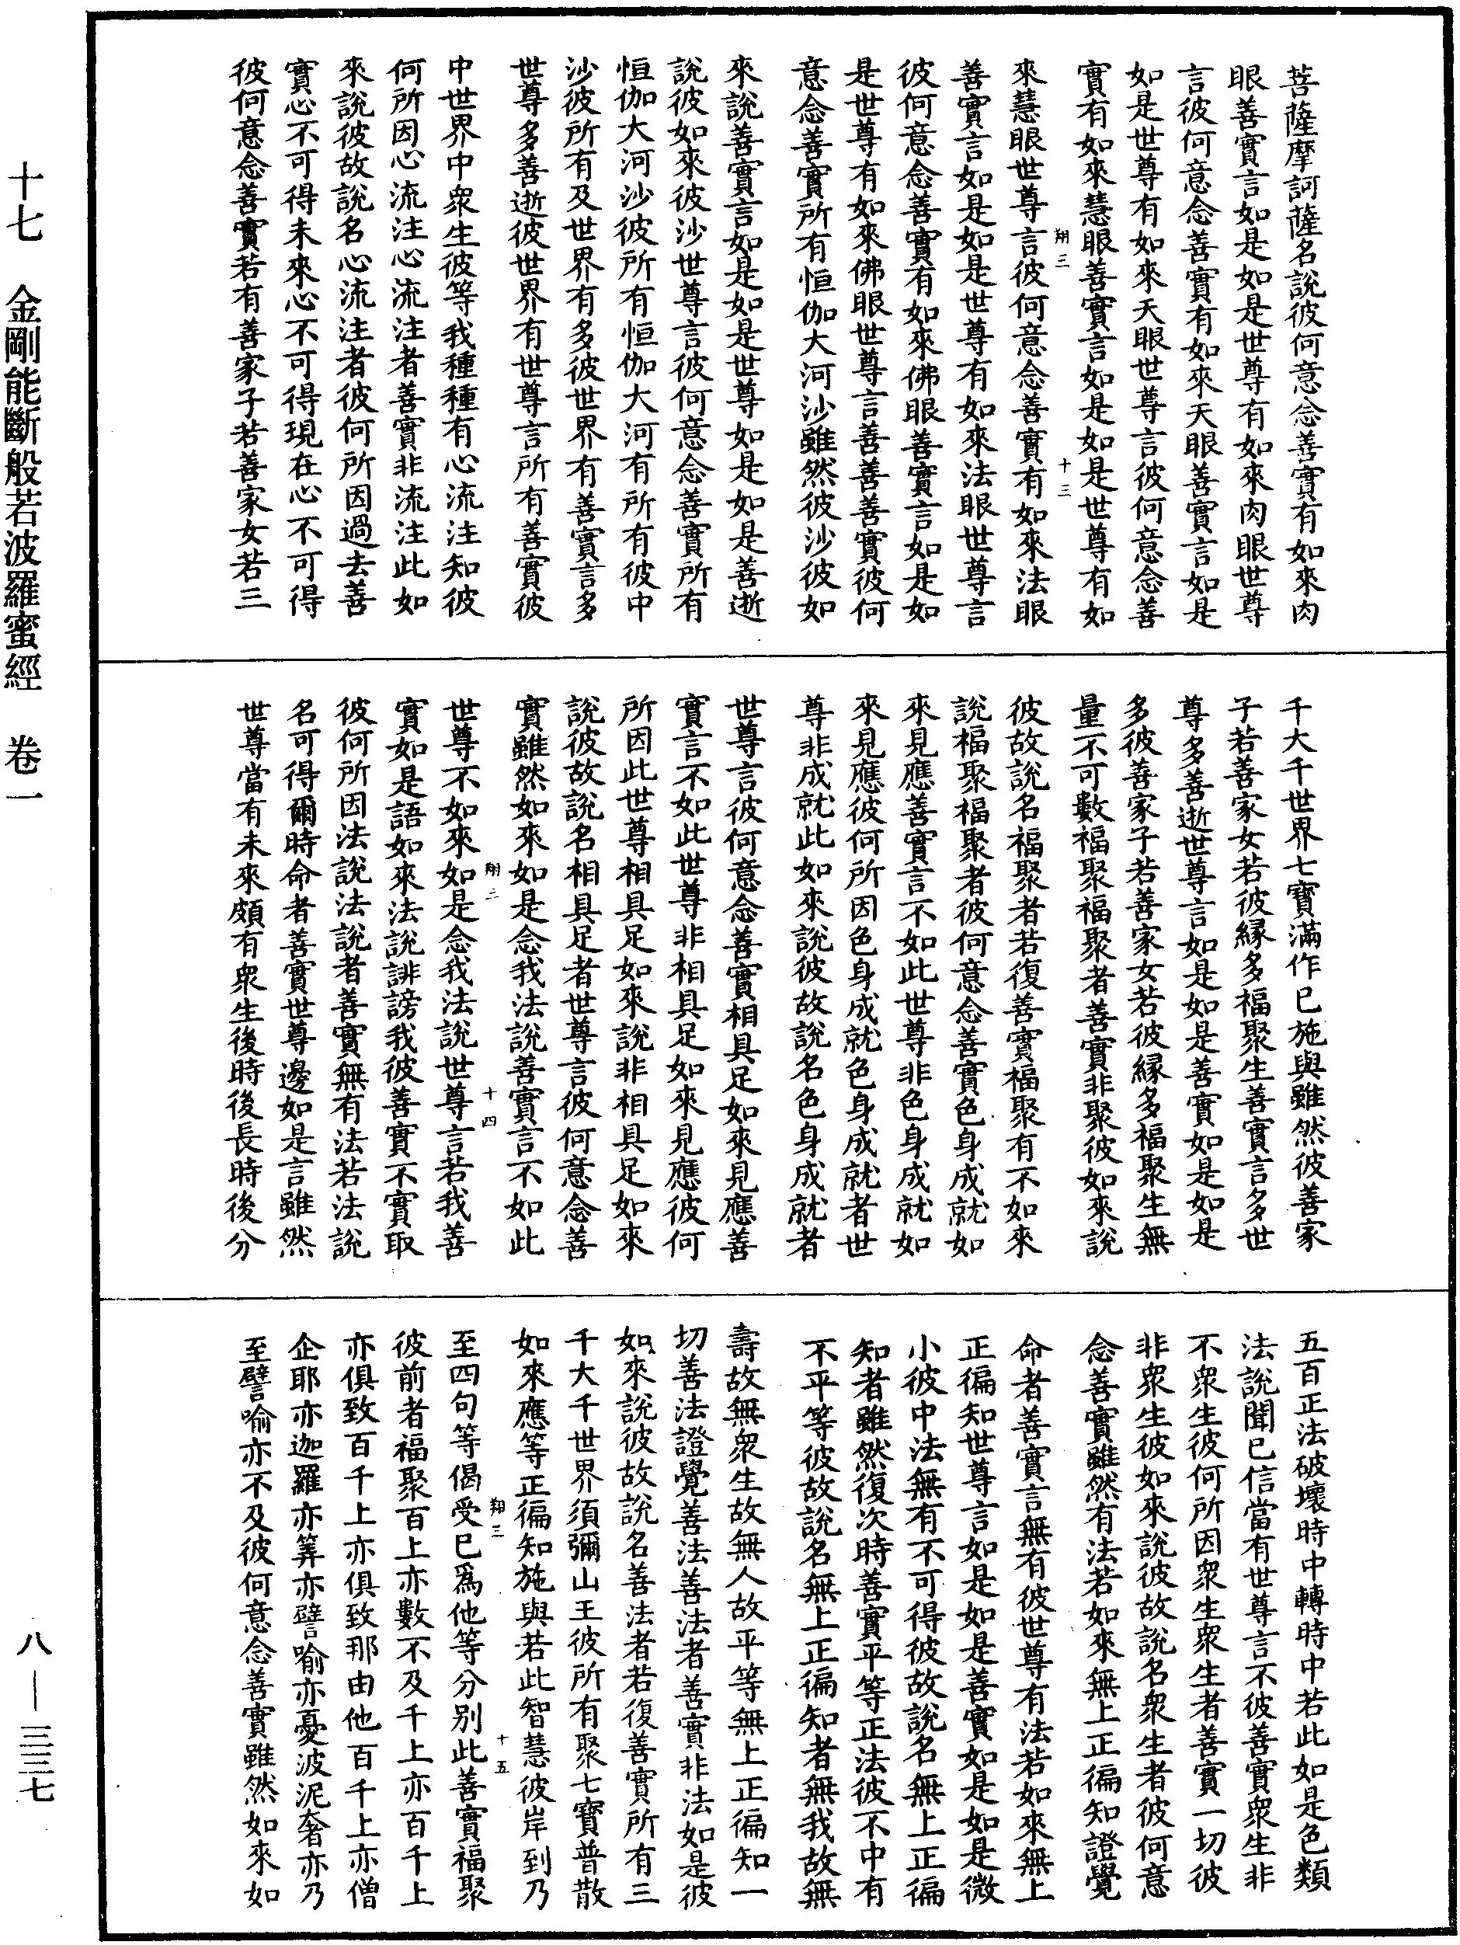 菩薩摩訶薩名說彼何意念善實有如來肉
眼善實言如是如是世尊有如來肉眼世尊
言彼何意念善實有如來天眼善實言如是
如是世尊有如來天眼世尊言彼何意念善
實有如來慧眼善實言如是如是世尊有如
來慧眼世尊言彼何意念善實有如來法眼
善實言如是如是世尊有如來法眼世尊言
彼何意念善實有如來佛眼善實言如是如
是世尊有如來佛眼世尊言善善善實彼何
意念善實所有恒伽大河沙雖然彼沙彼如
來說善實言如是如是世尊如是如是善逝
說彼如來彼沙世尊言彼何意念善實所有
恒伽大河沙彼所有恒伽大河有所有彼中
沙彼所有及世界有多彼世界有善實言多
世尊多善逝彼世界有世尊言所有善實彼
中世界中衆生彼等我種種有心流注知彼
何所因心流注心流注者善實非流注此如
來說彼故說名心流注者彼何所因過去善
實心不可得未來心不可得現在心不可得
彼何意念善實若有善家子若善家女若三
翔三
十三
千大千世界七寶滿作已施與雖然彼善家
子若善家女若彼緣多福聚生善實言多世
尊多善逝世尊言如是如是善實如是如是
多彼善家子若善家女若彼緣多福聚生無
量不可數福聚福聚者善實非聚彼如來說
彼故說名福聚者若復善實福聚有不如來
說福聚福聚者彼何意念善實色身成就如
來見應善實言不如此世尊非色身成就如
來見應彼何所因色身成就色身成就者世
尊非成就此如來說彼故說名色身成就者
世尊言彼何意念善實相具足如來見應善
實言不如此世尊非相具足如來見應彼何
所因此世尊相具足如來說非相具足如來
說彼故說名相具足者世尊言彼何意念善
實雖然如來如是念我法說善實言不如此
世尊不如來如是念我法說世尊言若我善
實如是語如來法說誹謗我彼善實不實取
彼何所因法說法說者善實無有法若法說
名可得爾時命者善實世尊邊如是言雖然
世尊當有未來頗有衆生後時後長時後分
翔三
十四
五百正法破壞時中轉時中若此如是色類
法說聞已信當有世尊言不彼善實衆生非
不衆生彼何所因衆生衆生者善實一切彼
非衆生彼如來說彼故說名衆生者彼何意
念善實雖然有法若如來無上正徧知證覺
命者善實言無有彼世尊有法若如來無上
正徧知世尊言如是如是善實如是如是微
小彼中法無有不可得彼故說名無上正徧
知者雖然復次時善實平等正法彼不中有
不平等彼故說名無上正徧知者無我故無
壽故無衆生故無人故平等無上正徧知一
切善法證覺善法善法者善實非法如是彼
如來說彼故說名善法者若復善實所有三
千大千世界須彌山王彼所有聚七寶普散
如來應等正徧知施與若此智慧彼岸到乃
至四句等偈受已爲他等分別此善實福聚
彼前者福聚百上亦數不及千上亦百千上
亦俱致百千上亦俱致那由他百千上亦僧
企耶亦迦羅亦筭亦譬喻亦憂波泥奢亦乃
至譬喻亦不及彼何意念善實雖然如來如
翔三
十五
十七 金剛能斷般若波羅蜜經 卷一
八—三三七